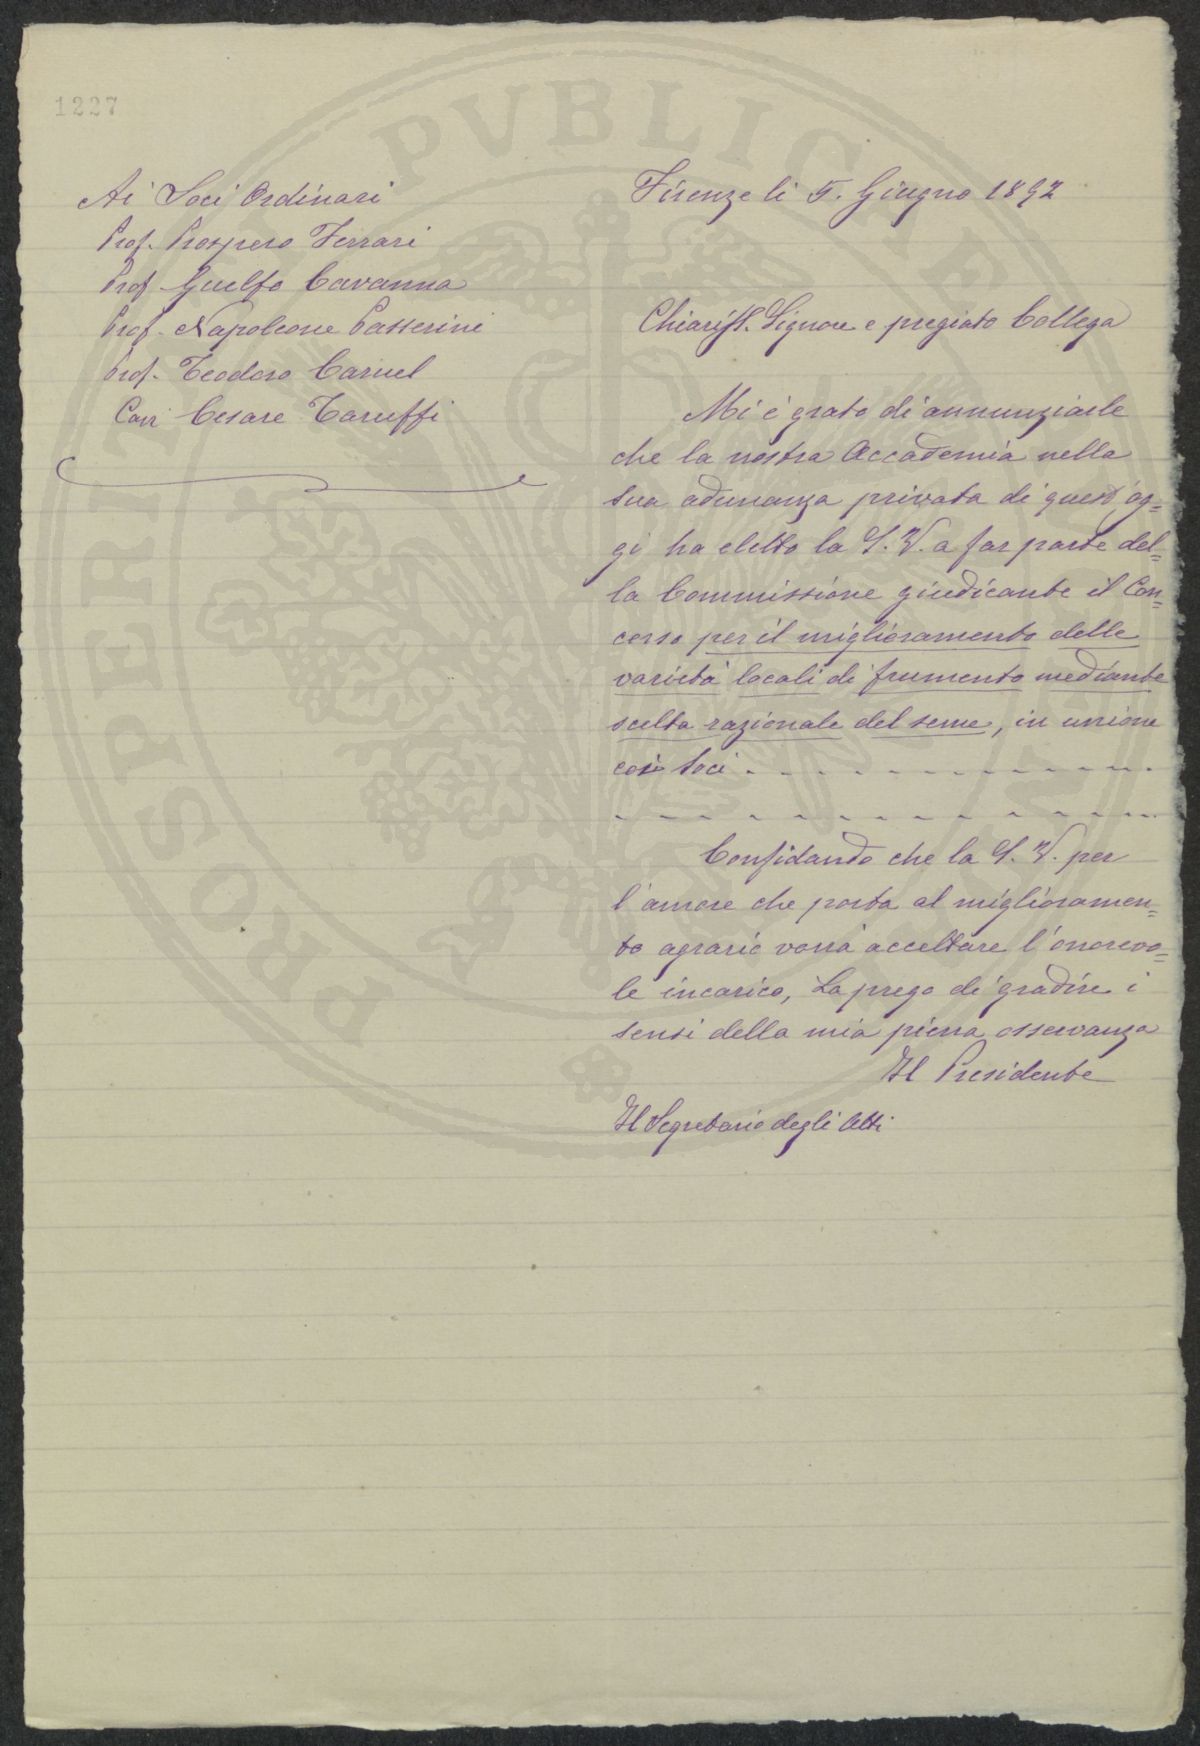 1227
Ai Soci Ordinari
Prof. Prospero Ferrari
Prof Guelfo Cavanna
Prof. Napoleone Passerini
Prof. Teodoro Caruel
Cav Cesare Taruffi
Firenze li 5. Giugno 1892
Chiariss. Signore e pregiato Collega
Mi è grato di annunziarle
che la nostra Accademia nella
sua adunanza privata di quest'og=
gi ha eletto la S. V. a far parte del=
la Commissione giudicante il Con=
corso per il miglioramento delle
varietà locali di frumento mediante
scelta razionale del seme, in unione
coi Soci - - - - - - - - - - - - - -
- - - - - - - - - - - - - - - - -
Confidando che la S. V. per
l'amore che porta al miglioramen=
to agrario vorrà accettare l'onorevo=
le incarico, La prego di gradire i
sensi della mia piena osservanza
Il Presidente
Il Segretario degli Atti
PROSPERITATI PUBLICAE